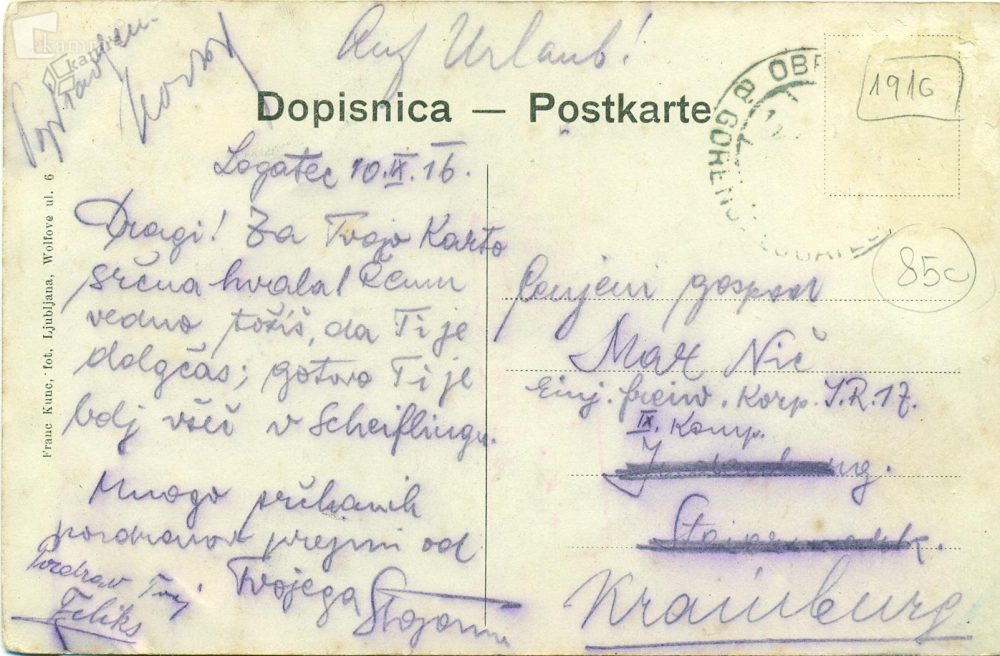 Auf Urlaub!
Pozdravljen
1916
Dopisnica — Postkarte
Logatec 10.IX.16.
Dragi! Za Tvojo Karto
srčna hvala! Čemu
vedno tožiš, da Ti je
dolgčas; gotovo Ti je
bolj všeč v Scheiflingu.
Mnogo srčkanih
pozdravov prejmi od
Tvojega Stojana
Pozdrav Tvoj
Feliks
Franc Kunc, fot, Ljubljana, Wolfove ul. 6
85c
Cenjeni gospod
Max Nič
Einj. freiw. Korp. I.R.17.
IX. Komp.
Krainburg
kamra